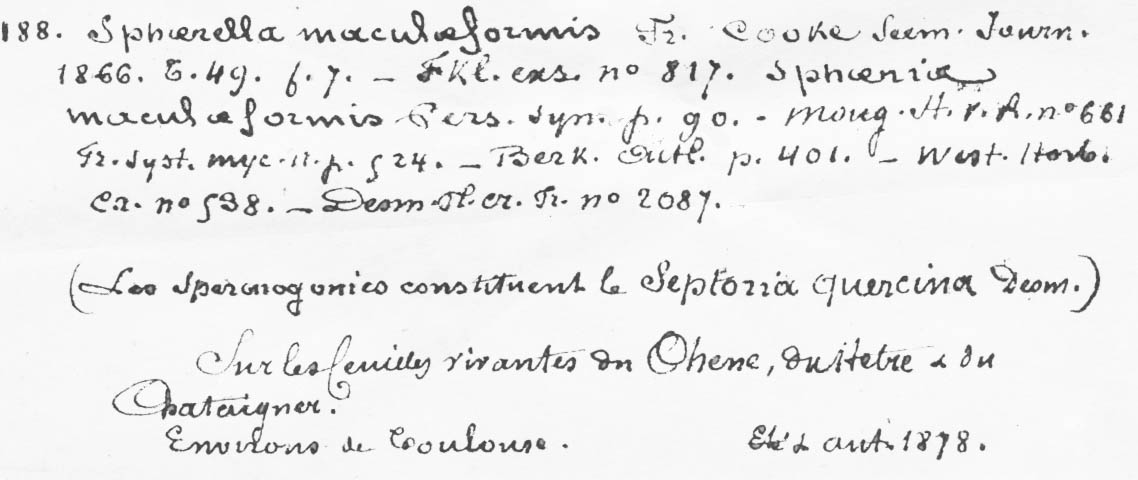 188. Sphærella maculæformis Fr. Cooke Seem. Journ.
1866. t. 49. f. 7. – Fkl. exs. nº 817. Sphæria
maculæformis Pers. Syn. p. 90. - Moug. St. V. R. nº 661
Fr. Syst. myc. II. p. 524. – Berk. Outl. p. 401. – West. Herb.
Cr. nº 538. – Desm. Pl. cr. Fr. nº 2087.
(Les spermogonies constituent le Septoria quercina Desm.)
Sur les feuilles vivantes du Chene, du Hetre & du
Chataigner.
Environs de Toulouse. Eté & aut. 1878.